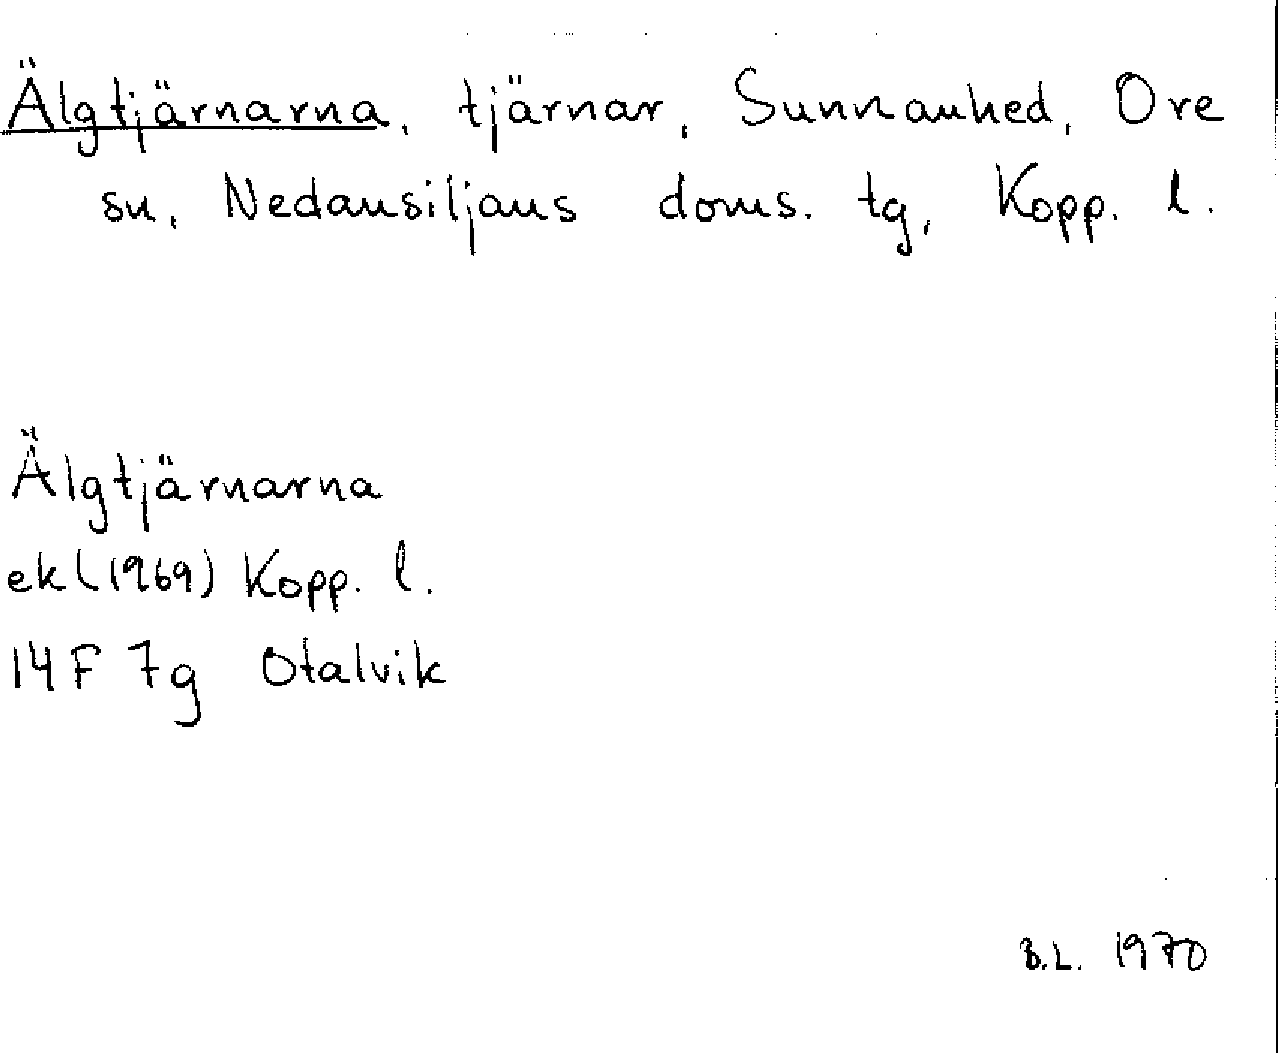 Älgtjärnarna, tjärnar, Sunnanhed, Ore
sn, Nedansiljans doms. tg, Kopp. l.
Älgtjärnarna
ek (1969) Kopp. l.
14F 7g Otalvik
B.L. 1970